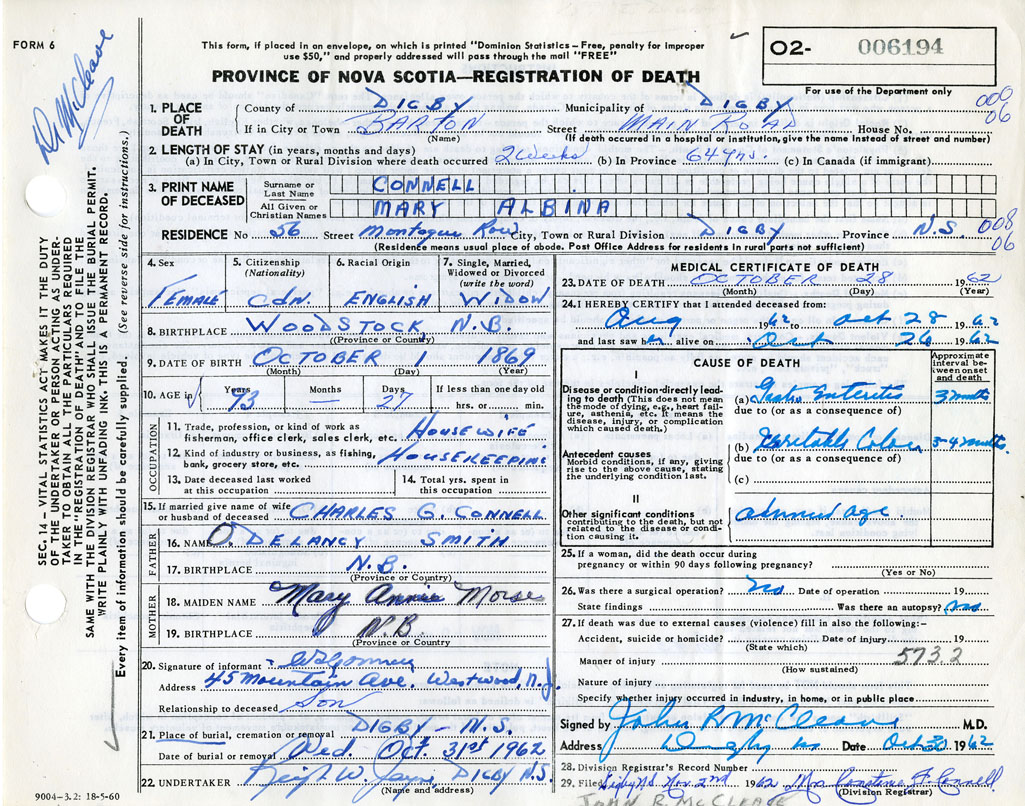 FORM 6
Dr McCleave
This form, if placed in an envelope, on which is printed "Dominion Statistics – Free, penalty for improper
use $50," and properly addressed will pass through the mail "FREE"
PROVINCE OF NOVA SCOTIA—REGISTRATION OF DEATH
O2- 006194
For use of the Department only
000
06
1. PLACE OF DEATH County of DIGBY Municipality of DIGBY
If in City or Town BARTON (Name) Street MAIN ROAD House No.
(If death occurred in a hospital or institution, give the name instead of street and number)
2. LENGTH OF STAY (in years, months and days)
(a) In City, Town or Rural Division where death occurred 2 Weeks (b) In Province 64 yrs. (c) In Canada (if immigrant)
3. PRINT NAME OF DECEASED Surname or Last Name CONNELL
All Given or Christian Names MARY ALBINA
RESIDENCE No 56 Street Montague Row City, Town or Rural Division DIGBY Province N.S.
008
06
(Residence means usual place of abode. Post Office Address for residents in rural parts not sufficient)
4. Sex FEMALE
5. Citizenship (Nationality) CDN.
6. Racial Origin ENGLISH
7. Single, Married, Widowed or Divorced (write the word) WIDOW
8. BIRTHPLACE WOODSTOCK, N.B.
(Province or County)
9. DATE OF BIRTH OCTOBER 1 1869
(Month) (Day) (Year)
10. AGE in Years 93 Months — Days 27 If less than one day old hrs. or min.
OCCUPATION
11. Trade, profession, or kind of work as fisherman, office clerk, sales clerk, etc. HOUSEWIFE
12. Kind of industry or business, as fishing, bank, grocery store, etc. HOUSEKEEPING
13. Date deceased last worked at this occupation
14. Total yrs. spent in this occupation
15. If married give name of wife or husband of deceased CHARLES G. CONNELL
FATHER
16. NAME O. DELANCY SMITH
17. BIRTHPLACE N.B.
(Province or Country)
MOTHER
18. MAIDEN NAME Mary Annie Morse
19. BIRTHPLACE N.B.
(Province or Country
20. Signature of informant
Address 45 Mountain Ave. Westwood, N.J.
Relationship to deceased Son
21. Place of burial, cremation or removal DIGBY – N.S.
Date of burial or removal Wed. Oct. 31st 1962
22. UNDERTAKER W. DIGBY N.S.
(Name and address)
9004–3.2: 18-5-60
MEDICAL CERTIFICATE OF DEATH
23. DATE OF DEATH OCTOBER 28 1962
(Month) (Day) (Year)
24. I HEREBY CERTIFY that I attended deceased from:
Aug 1962 to Oct 28 1962
and last saw her alive on Oct 26 1962
CAUSE OF DEATH
Approximate interval between onset and death
I
Disease or condition directly leading to death (This does not mean the mode of dying, e.g., heart failure, asthenia, etc. It means the disease, injury, or complication which caused death.)
(a) Gastro Enteritis 3 months
due to (or as a consequence of)
Antecedent causes
Morbid conditions, if any, giving rise to the above cause, stating the underlying condition last.
(b) Irritable Colon 3-4 months.
due to (or as a consequence of)
(c)
II
Other significant conditions contributing to the death, but not related to the disease or condition causing it.
advanced age.
25. If a woman, did the death occur during pregnancy or within 90 days following pregnancy?
(Yes or No)
26. Was there a surgical operation? No Date of operation 19
State findings Was there an autopsy? No
27. If death was due to external causes (violence) fill in also the following:-
Accident, suicide or homicide? (State which) Date of injury 19
573.2
Manner of injury
(How sustained)
Nature of injury
Specify whether injury occurred in industry, in home, or in public place
Signed by John R McCleave M.D.
Address Digby NS Date Oct 30 1962
28. Division Registrar's Record Number
29. Filed Digby N.S. Nov. 2nd 1962 Mrs. Constance F. Connell
(Division Registrar)
JOHN R. McCLEAVE
SEC. 14 – VITAL STATISTICS ACT MAKES IT THE DUTY
OF THE UNDERTAKER OR PERSON ACTING AS UNDER-
TAKER TO OBTAIN ALL THE PARTICULARS REQUIRED
IN THE "REGISTRATION OF DEATH" AND TO FILE THE
SAME WITH THE DIVISION REGISTRAR WHO SHALL ISSUE THE BURIAL PERMIT.
WRITE PLAINLY WITH UNFADING INK. THIS IS A PERMANENT RECORD.
Every item of information should be carefully supplied. (See reverse side for instructions.)